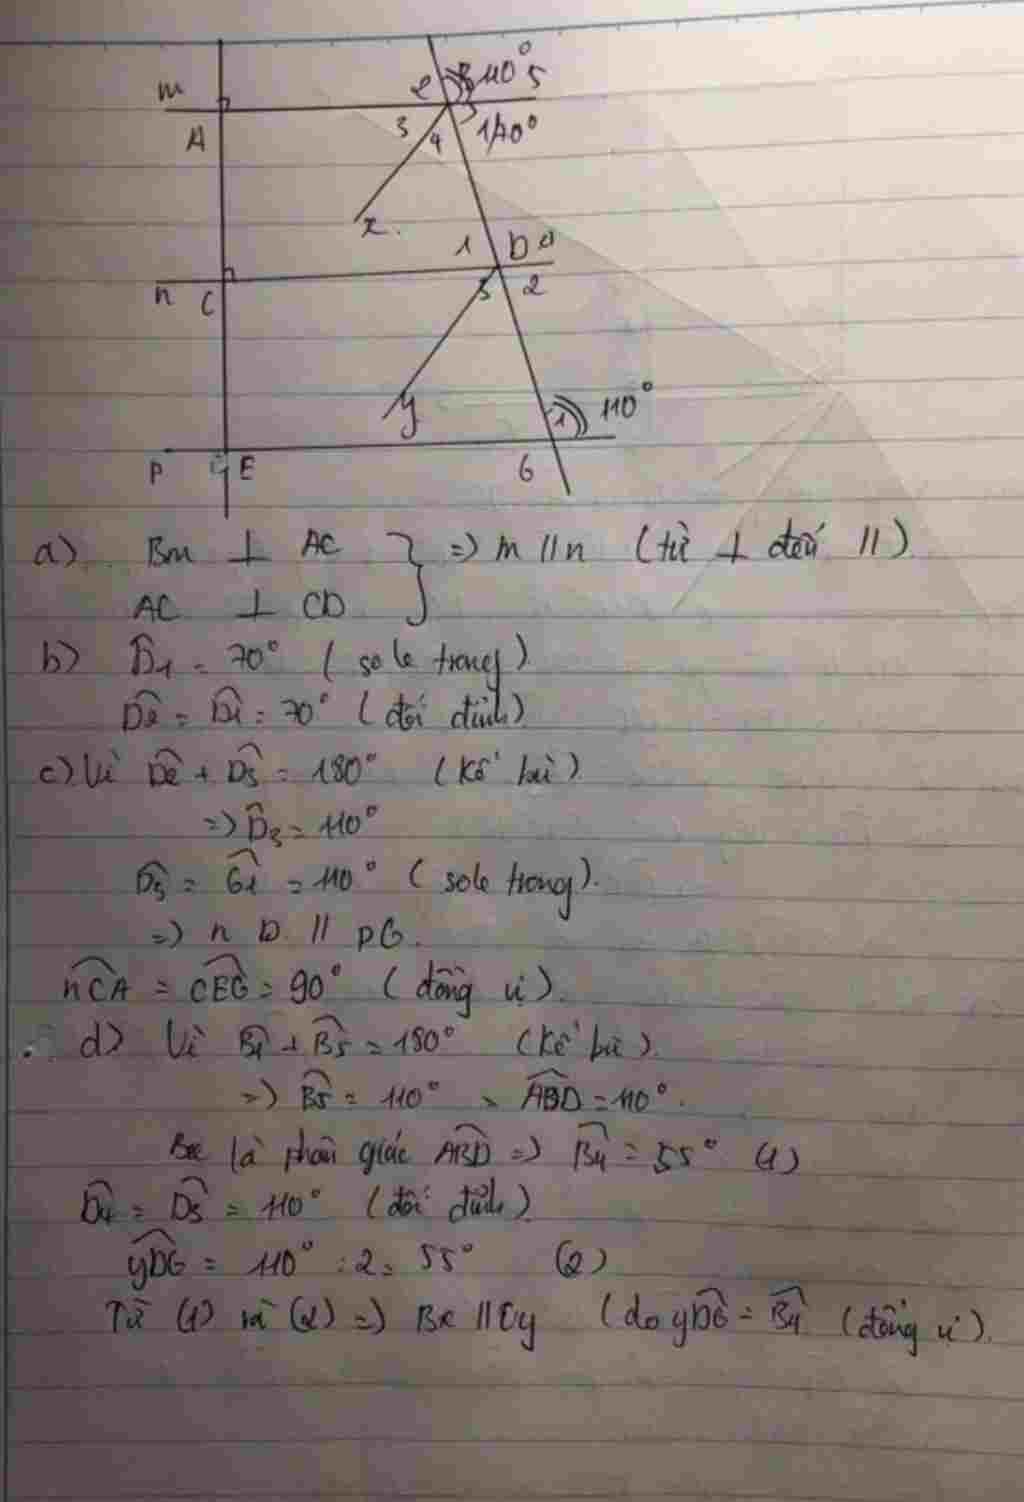 m
A
2
110° 5
3
4
1 70°
x
1
D
n
C
3
2
y
1
110°
P
E
G
a) Bm ⊥ AC } => m // n (từ ⊥ đến //)
AC ⊥ CD
b) D̂1 = 70° (sole trong)
D̂2 = D̂1 = 70° (đối đỉnh)
c) Vì D̂2 + D̂3 = 180° (kề bù)
=> D̂3 = 110°
D̂3 = Ĝ1 = 110° (sole trong).
=> n D // pG.
nCA = CEG = 90° (đồng vị).
d) Vì B̂1 + B̂5 = 180° (kề bù).
=> B̂5 = 110° ABD = 110°.
Bx là phân giác ABD => B̂4 = 55° (1)
D̂4 = D̂3 = 110° (đối đỉnh).
yDG = 110° : 2 = 55° (2)
Từ (1) và (2) => Bx // Dy (do yDG = B̂4 (đồng vị).